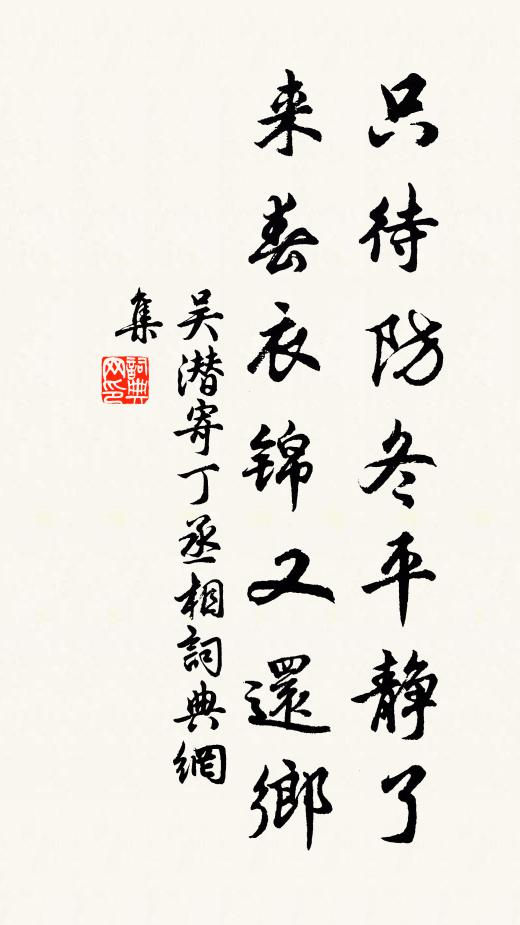 只待防冬平静了
来春衣锦又還鄉
吴潜寄丁丞相詞典網
集
詞典网印